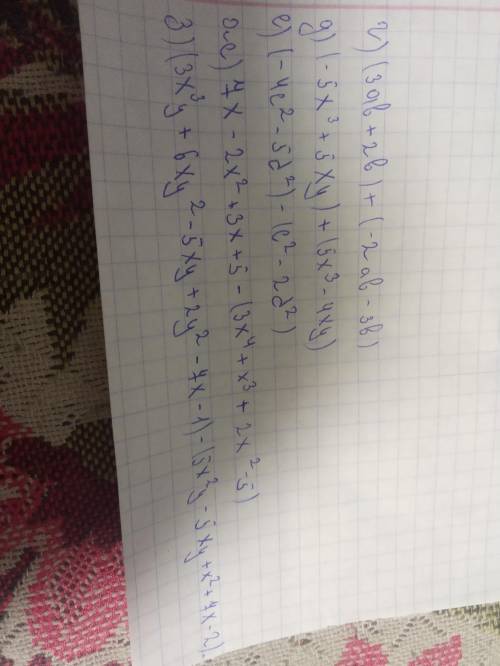 г) (3ab + 2b) + (-2ab - 3b)
д) (-5x³ + 5xy) + (5x³ - 4xy)
е) (-4c² - 5d²) - (c² - 2d²)
ж) 7x - 2x² + 3x + 5 - (3x⁴ + x³ + 2x² - 5)
з) (3x³y + 6xy² - 5xy + 2y² - 7x - 1) - (5x²y - 5xy + x² + 7x - 2).